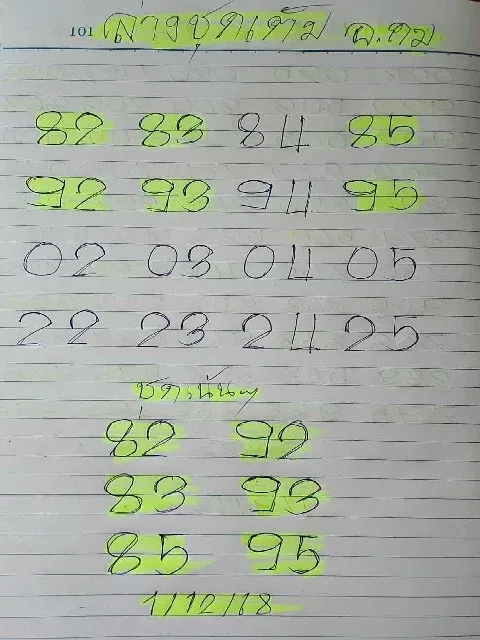 101 ล่างชุดเต็ม อ.ดม
82 83 84 85
92 93 94 95
02 03 04 05
22 23 24 25
ชุดเน้นๆ
82 92
83 93
85 95
1/12/18